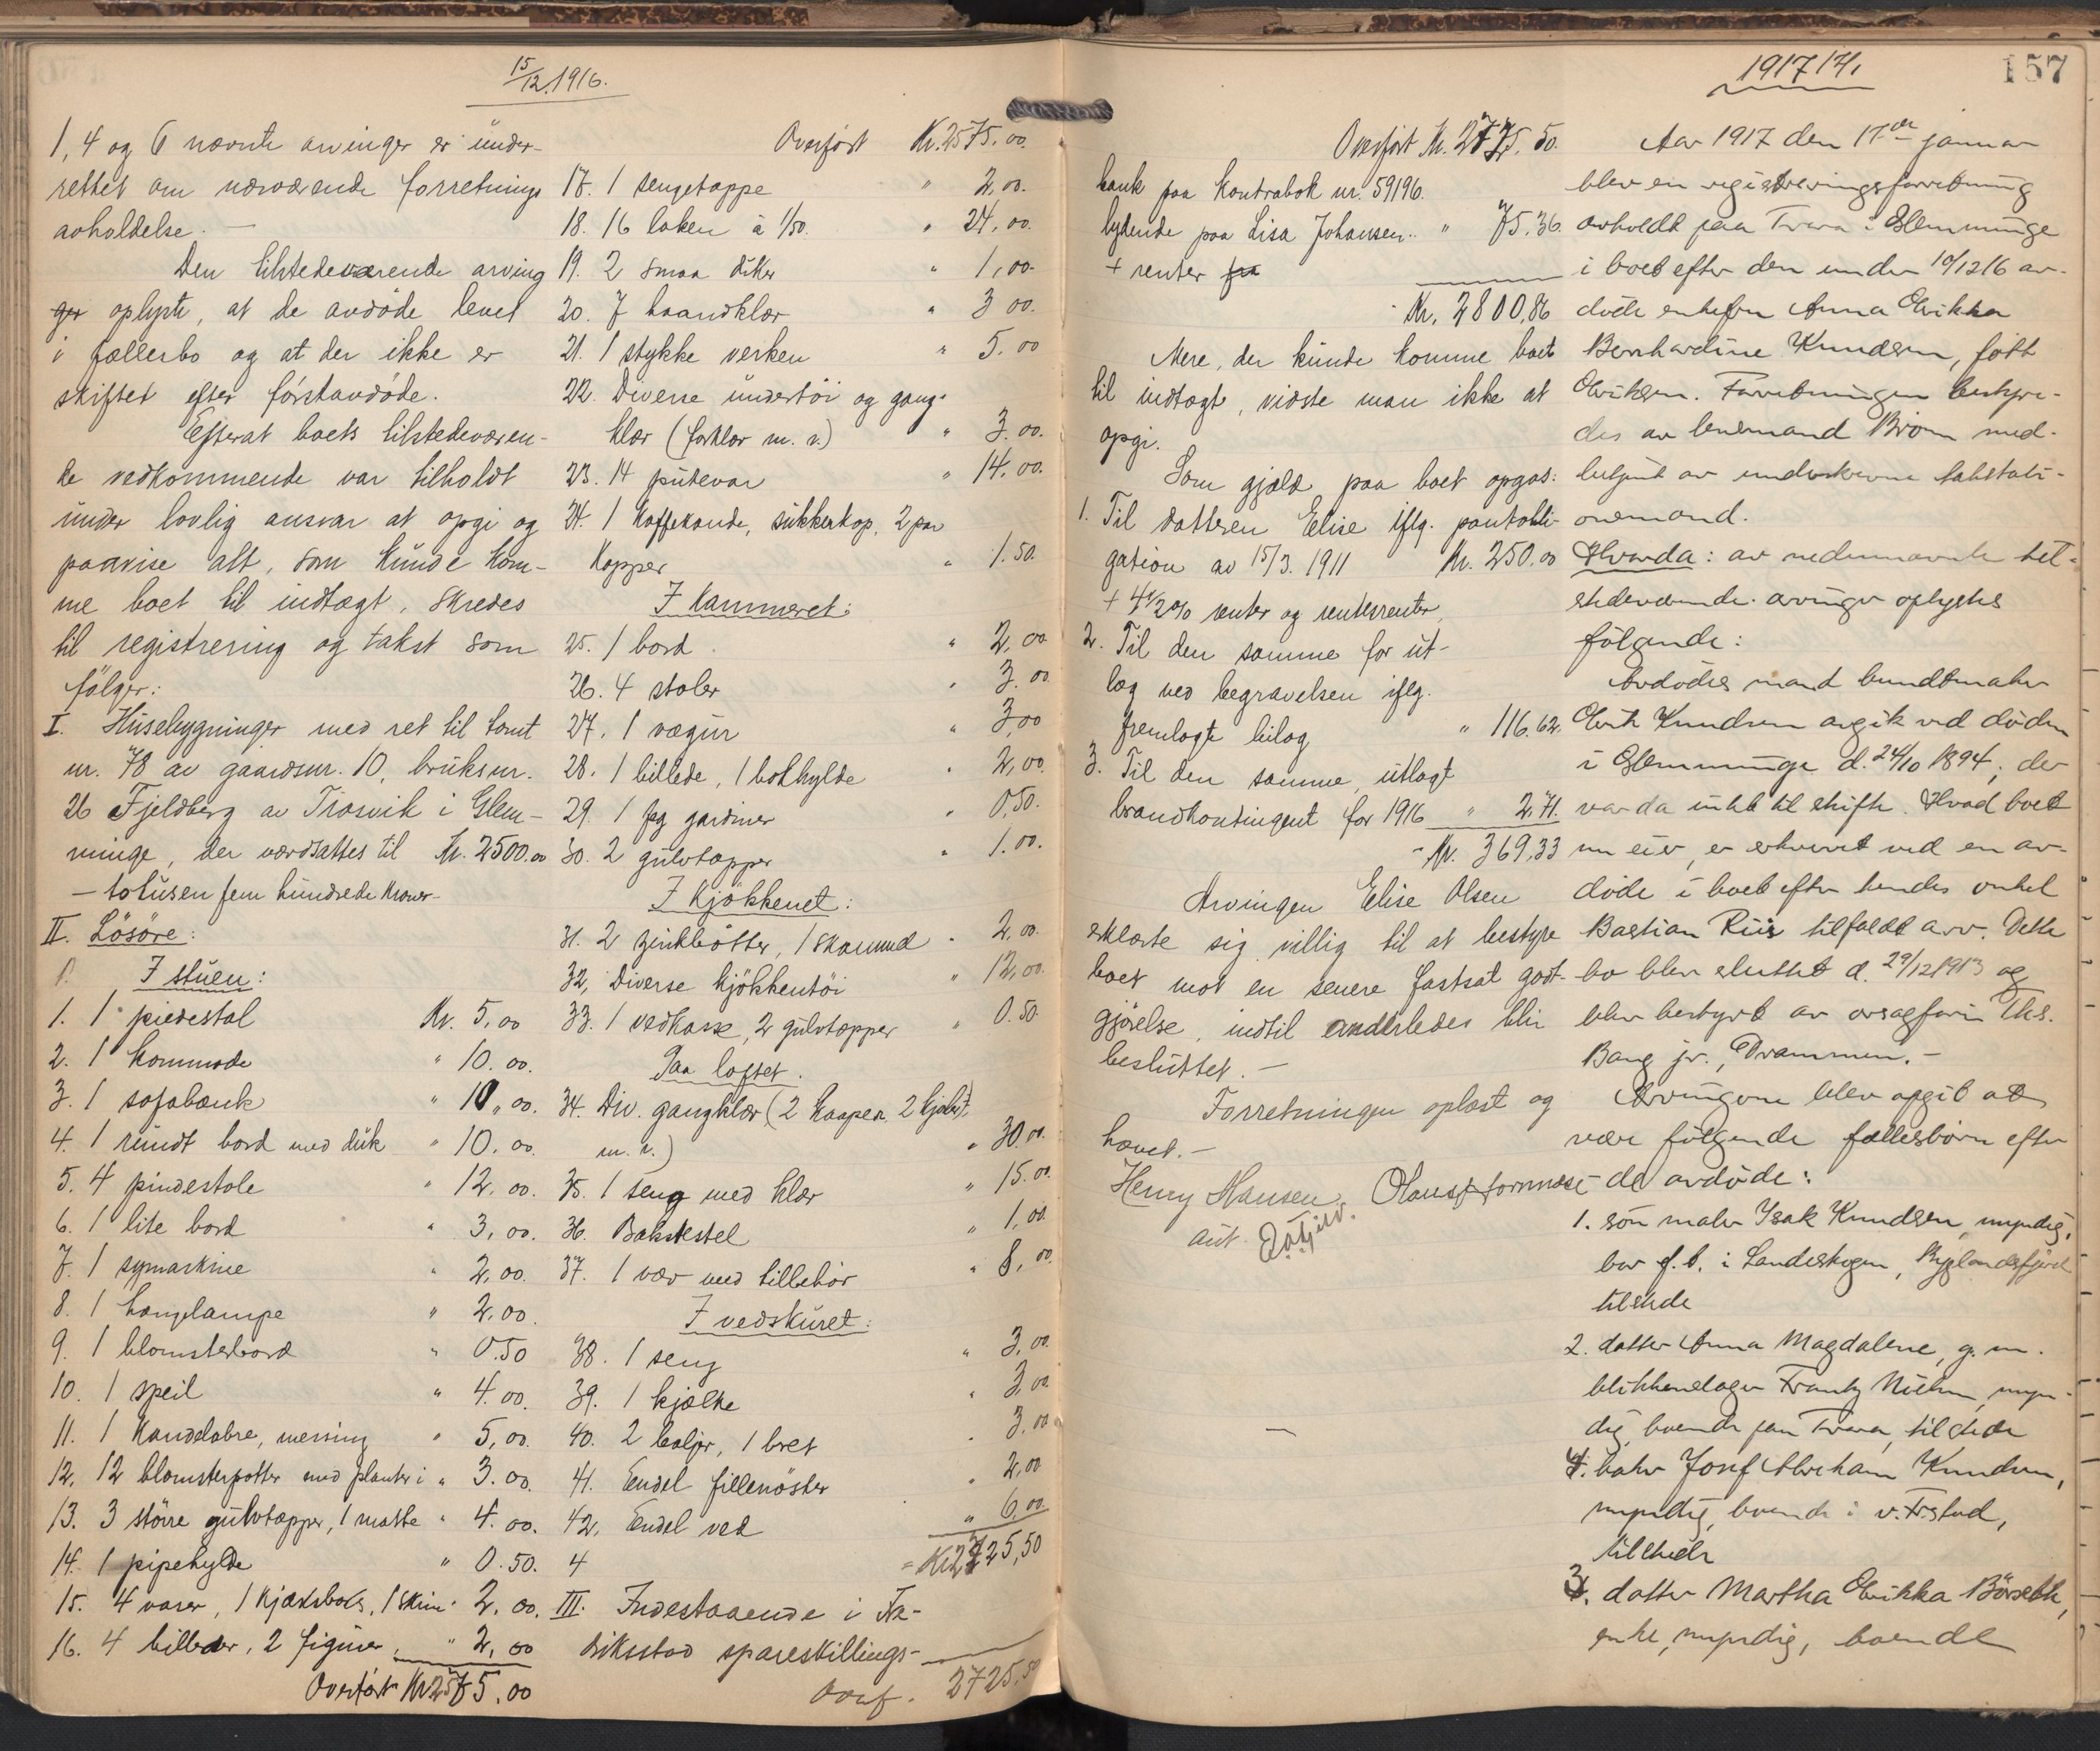 15/12.1916.
1, 4 og 6 nævnte arvinger er under-
rettet om nærværende forretnings
avholdelse. —
Den tilstedeværende arving
ger oplyste, at de avdøde levet
i fællesbo og at der ikke er
skiftet efter førstavdøde.
Efterat boets tilstedeværen-
de vedkommende var tilholdt
under lovlig ansvar at opgi og
paavise alt, som kunde kom-
me boet til indtægt, skredes
til registrering og takst som
følger:
I. Husebygninger med ret til tomt
nr. 78 av gaardsnr. 10, bruksnr.
26 Fjeldberg av Trosvik i Glem-
minge, der værdsattes til Kr. 2500.00
— totusen fem hundrede kroner -
II. Løsøre:
I stuen:
1. 1 piedestal Kr. 5,00
2. 1 kommode " 10.00.
3. 1 sofabænk " 10,00.
4. 1 rundt bord med duk " 10.00.
5. 4 pindestole " 12.00.
6. 1 lite bord " 3,00.
7. 1 symaskine " 2,00.
8. 1 hængelampe " 2.00.
9. 1 blomsterbord " 0.50
10. 1 speil " 4.00.
11. 1 Kandelabre, messing " 5,00.
12. 12 blomsterpotter med planter i " 3.00.
13. 3 større gulvtæpper, 1 matte " 4.00.
14. 1 pipehylde " 0.50.
15. 4 vaser, 1 kjæksboks, 1 skrin " 2.00.
16. 4 billeder, 2 figurer " 2,00
Overført Kr 2575.00
Overført Kr. 2575.00.
17. 1 sengetæppe " 2,00.
18. 16 laken à 1/50. " 24,00.
19. 2 smaa duker " 1,00.
20. 7 haandklær " 3 00.
21. 1 stykke verken " 5.00
22. Diverse undertøi og gang-
klær (forklær m. v.) " 3.00.
23. 14 putevar " 14.00.
24. 1 kaffekande, sukkerkop, 2 par
Kopper " 1.50.
I Kammeret:
25. 1 bord " 2,00
26. 4 stoler " 3.00
27. 1 vægur " 3,00
28. 1 billede, 1 bokhylde " 2,00.
29. 1 fag gardiner " 0,50.
30. 2 gulvtæpper " 1.00.
I Kjøkkenet:
31. 2 zinkbøtter, 1 skammel " 2,00.
32, Diverse kjøkkentøi " 12,00.
33. 1 vedkasse, 2 gulvtæpper " 0.50.
Paa loftet.
34. Div. gangklær (2 kaaper, 2 kjoler,
m. v.) " 30.00.
35. 1 seng med klær " 15.00.
36. Bakstestel " 1,00.
37. 1 væv med tilbehør " 8,00.
I vedskuret:
38. 1 seng " 3,00.
39. 1 kjælke " 3,00
40. 2 baljer, 1 bret " 3,00
41. Endel fillenøster " 2,00
42. Endel ved " 6,00
4 = Kr 2725,50
III. Indestaaende i Fre-
driksstad spareskillings-
Overf. 2725.50
1917 17/1
157
Overført Kr. 2725.50.
bank paa kontrabok nr. 59196.
lydende paa Lisa Johansen.. " 75.36.
+ renter
Kr. 2800,86
Mere, der kunde komme boet
til indtægt, vidste man ikke at
opgi.
Som gjæld paa boet opgas:
1. Til datteren Elise iflg. pantobli-
gation av 15/3. 1911 Kr. 250.00
+ 4 1/2 % renter og rentesrenter,
2. Til den samme for ut-
læg ved begravelsen iflg.
fremlagte bilag " 116.62.
3. Til den samme, utlagt
brandkontingent for 1916 " 2.71.
Kr. 369,33
Arvingen Elise Olsen
erklærte sig villig til at bestyre
boet mot en senere fastsat godt-
gjørelse, indtil anderledes blir
besluttet. —
Forretningen oplæst og
hævet. —
Henry Hansen.
aut.
Aar 1917 den 17de januar
blev en registreringsforretning
avholdt paa Trara i Glemminge
i boet efter den under 10/12 16 av-
døde enkefru Anna Erikka
Bernhardine Knudsen, født
Eriksen. Forretningen bestyre-
des av lensmand Bröm med-
hulpent av underskrevne takstati-
onsmand.
Hvorda: av nedennævnte til-
stedeværende arvinger oplystes
følgende:
Avdødes mand bundtmaker
Erik Knudsen avgik ved døden
i Glemminge d. 24/10 1894; der
var da intet til skifte. Hvad boet
nu eier, er erhvervet ved en av-
døde i boet efter hendes onkel
Bastian Riis tilfaldt arv. Dette
bo blev sluttet d. 29/12 1913 og
blev bestyrt av overagfører Ths.
Bang jr., Drammen. —
Arvingerne blev opgit at
være følgende fællesbørn efter
de avdøde:
1. søn maler Isak Knudsen, myndig,
bor f. t. i Landeskogen, Byglandsfjord
tilstede
2. datter Anna Magdalene, g. m.
blikkenslager Frantz Nielsen, myn-
dig, boende paa Trara, tilstede
4. baker Josef Abraham Knudsen,
myndig, boende i v. Fr.stad,
tilstede
3. datter Martha Erikka Börseth,
enke, myndig, boende